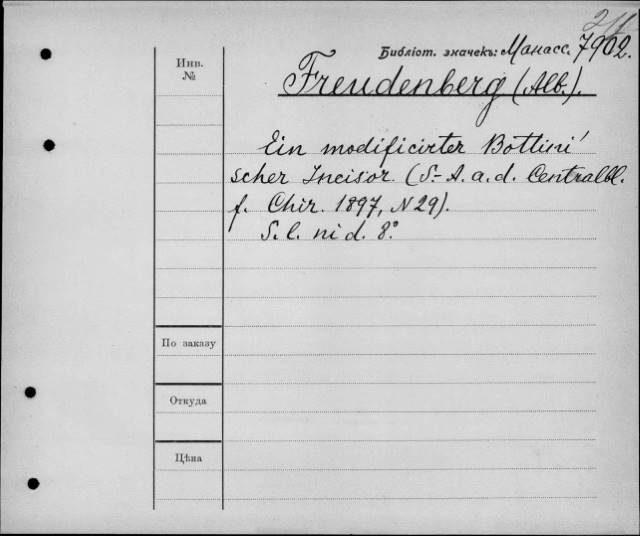 Библіот. значекъ: Манасс. 7902.
Инв.
№
Freudenberg (Alb.).
Ein modificirter Bottini'
scher Incisor. (S.-A. a. d. Centralbl.
f. Chir. 1897, N 29).
S. l. ni d. 8°.
По заказу
Откуда
Цѣна